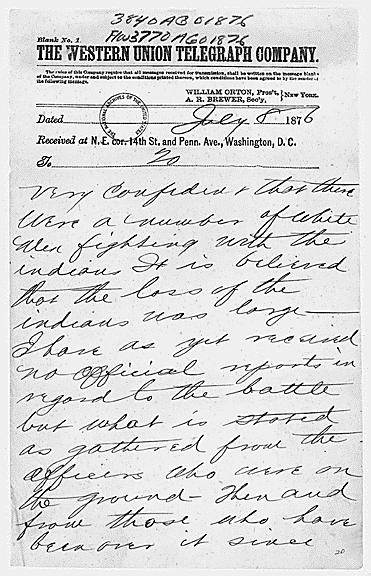 3840 AGO 1876
FW3770 AGO 1876
Blank No. 1.
THE WESTERN UNION TELEGRAPH COMPANY.
The rules of this Company require that all messages received for transmission, shall be written on the message blanks of the Company, under and subject to the conditions printed thereon, which conditions have been agreed to by the sender of the following message.
WILLIAM ORTON, Pres't,
A. R. BREWER, Sec'y,
} New York.
Dated July 8 1876
Received at N. E. cor. 14th St. and Penn. Ave., Washington, D. C.
To 20
Very Confident that there
were a number of White
Men fighting with the
indians It is believed
that the loss of the
indians was large—
I have as yet received
no Official reports in
regard to the battle
but what is stated
as gathered from the
officers who were on
the ground then and
from those who have
been over it since
20